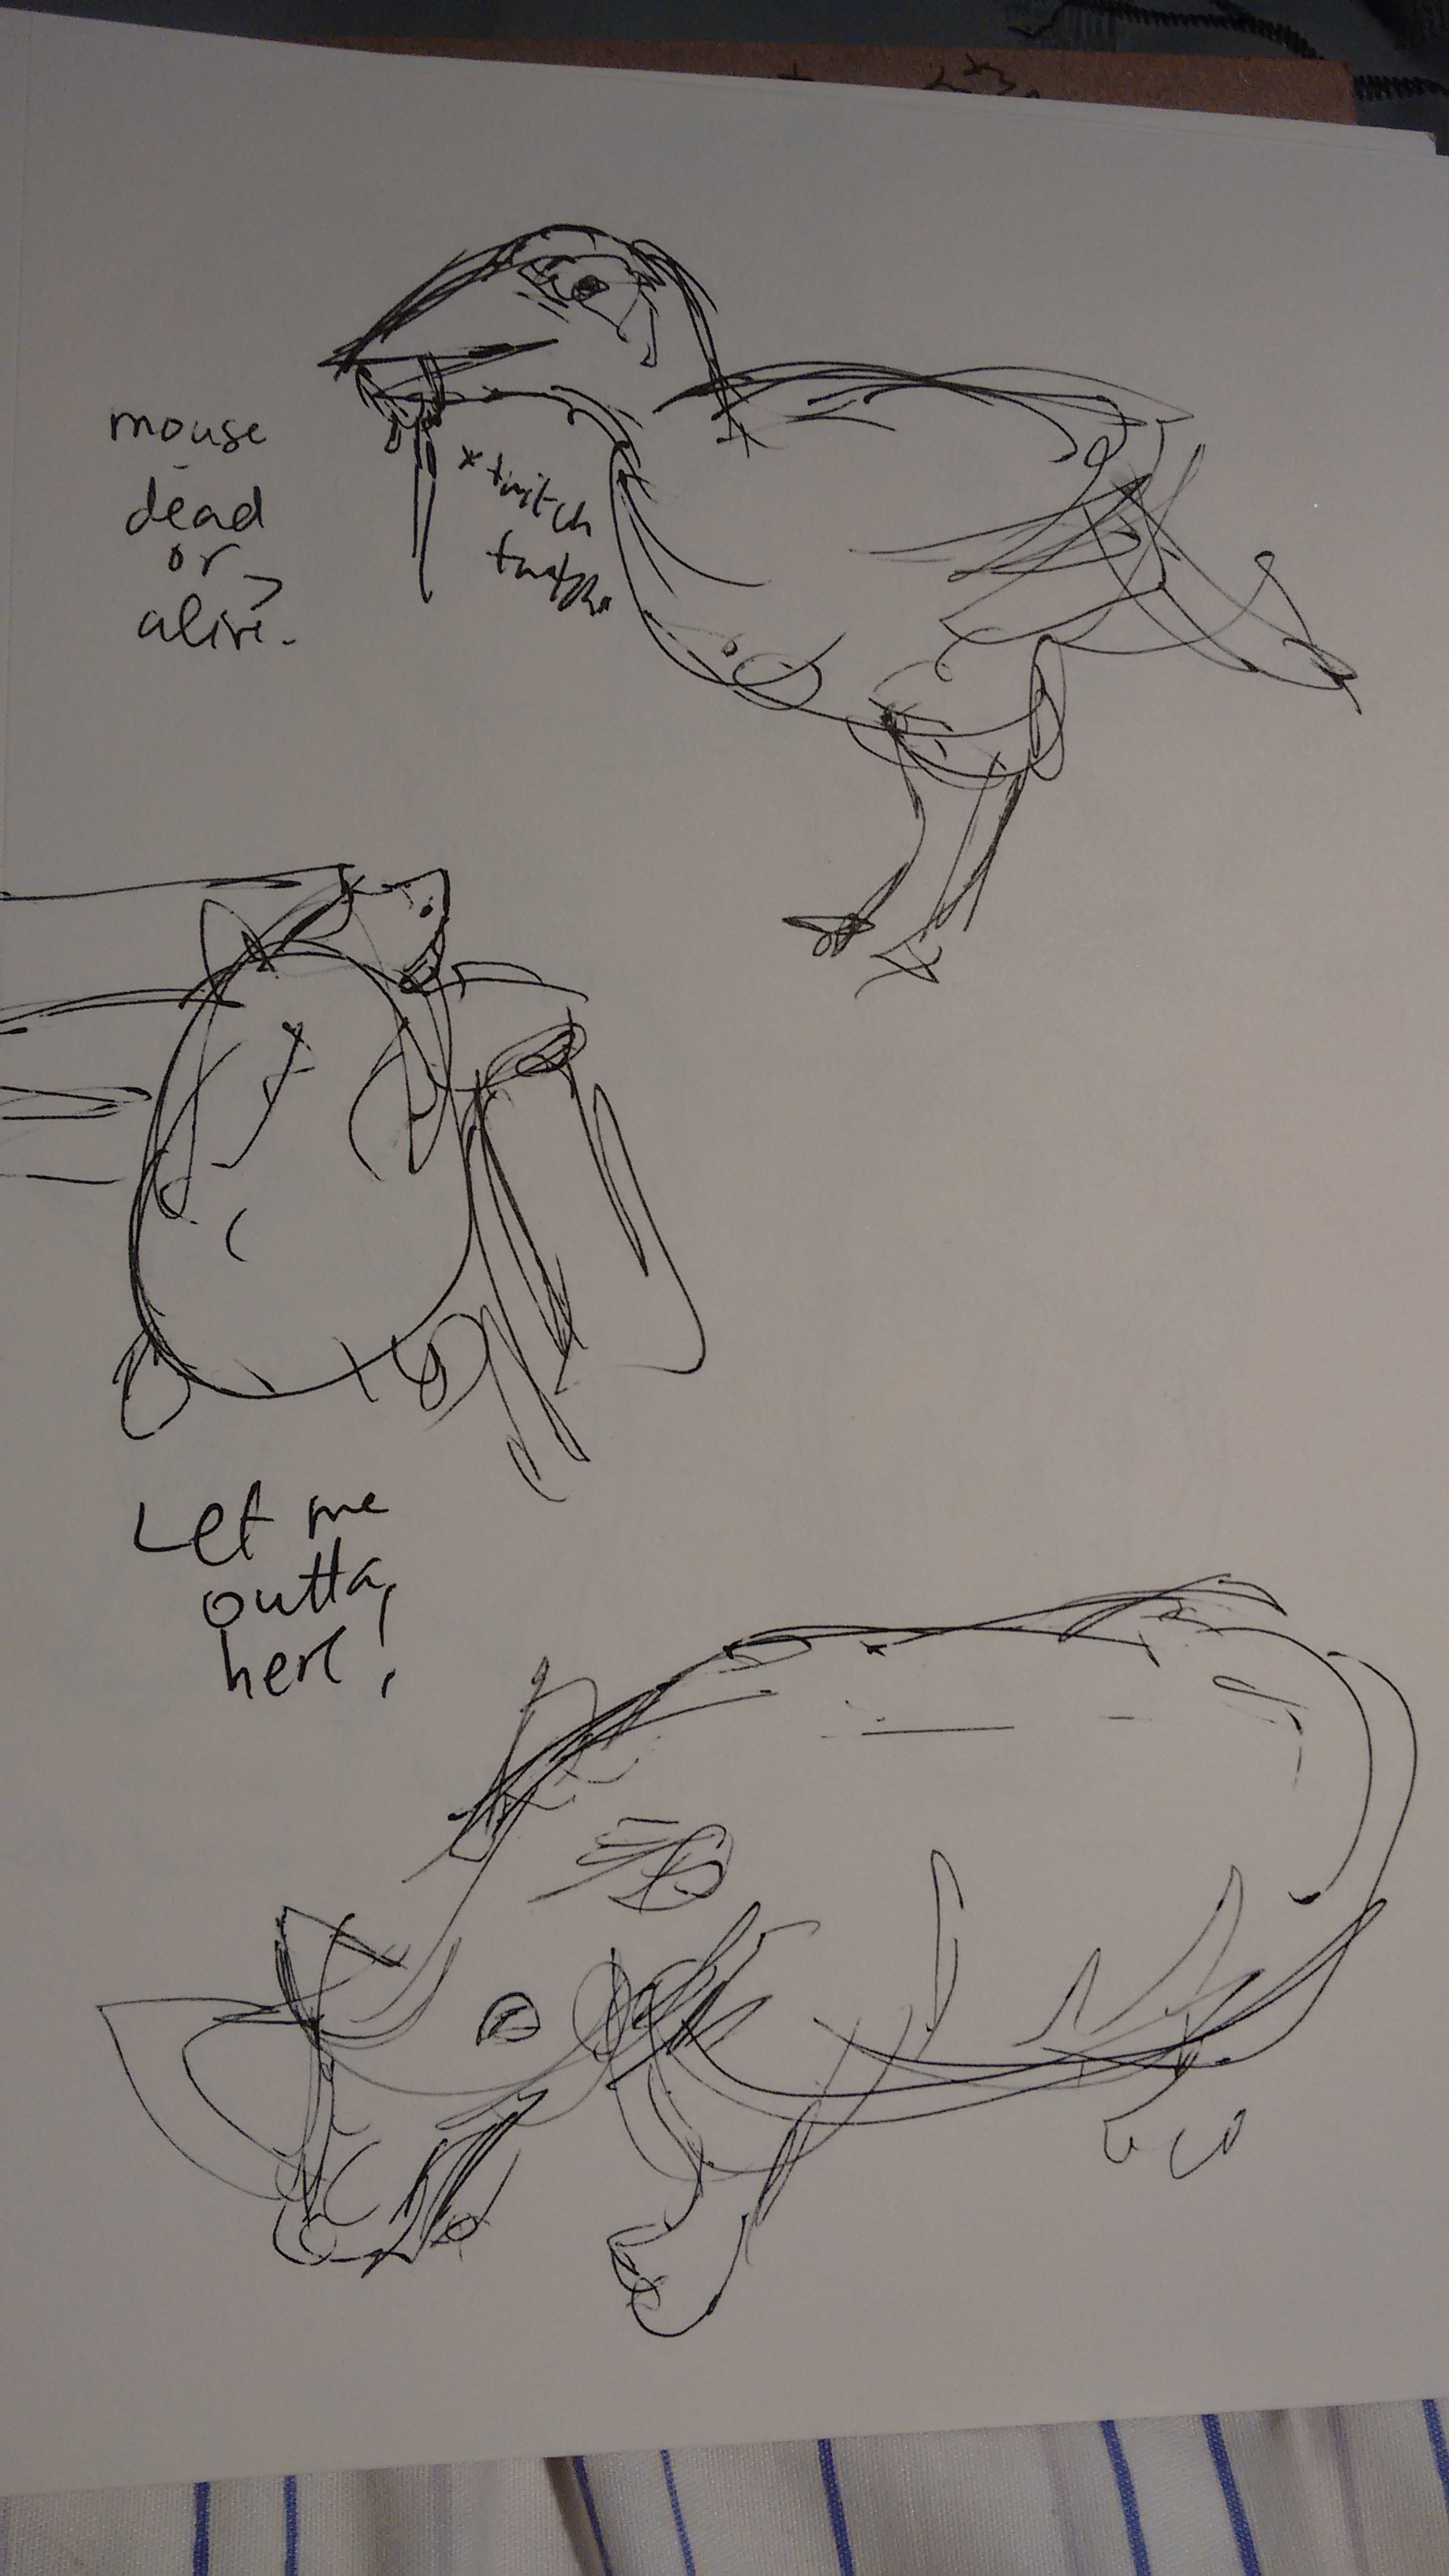 mouse
dead
or
alive.
*twitch
Let me
outta
here!